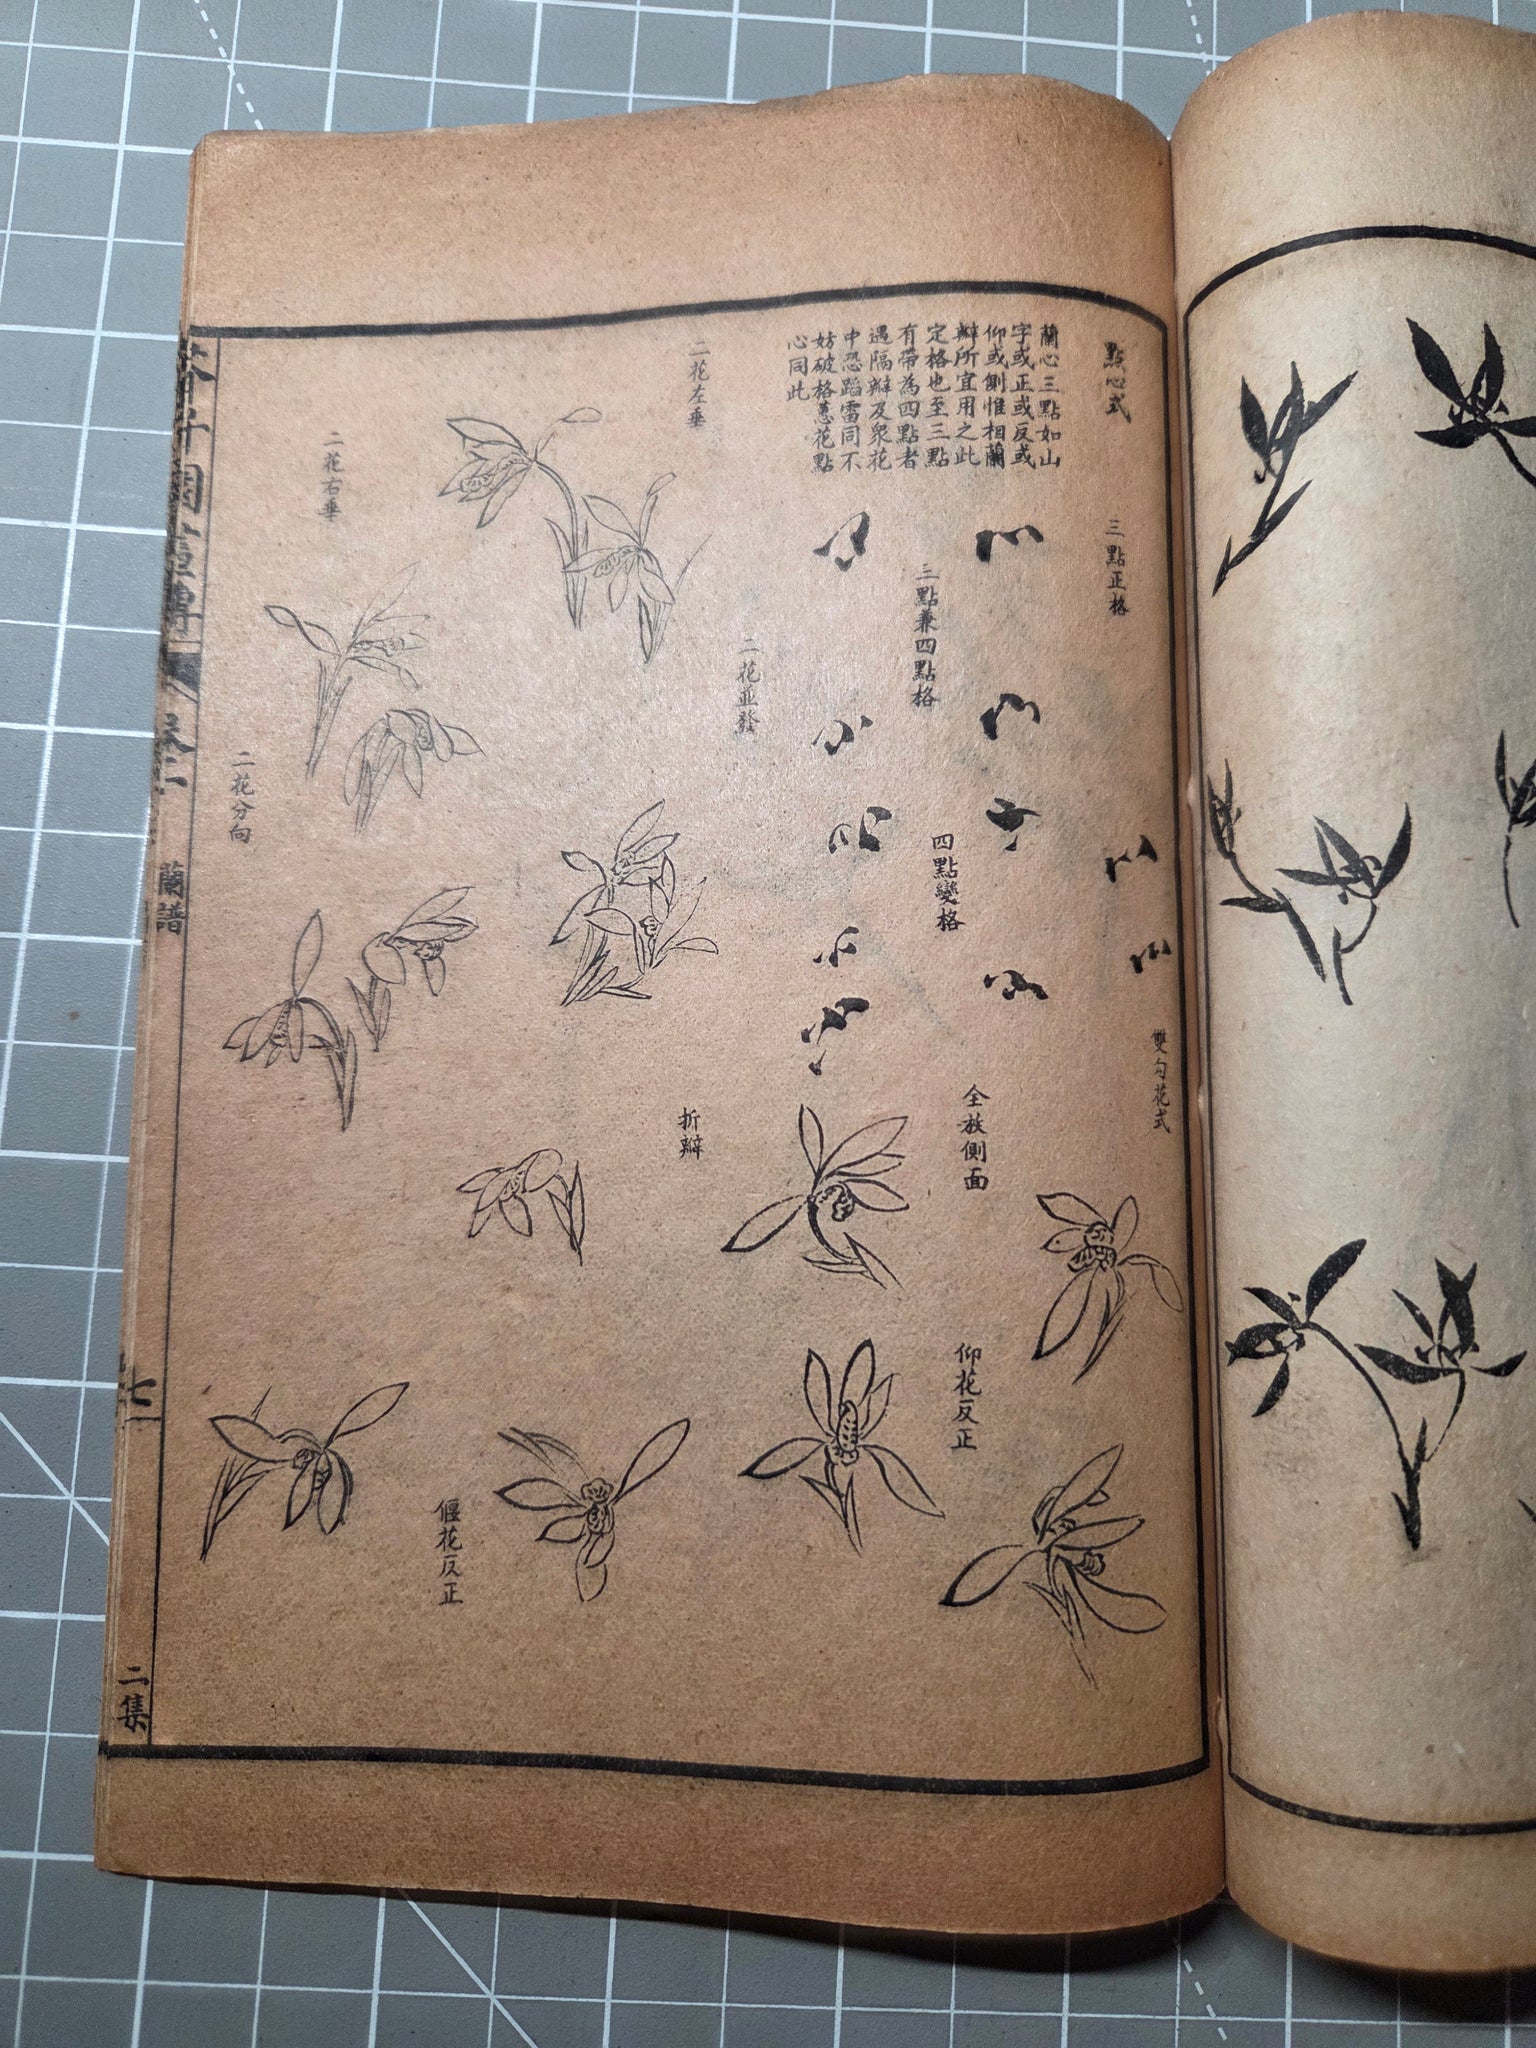 點心式
蘭心三點如山
字或正或反或
仰或側惟相蘭
辦所宜用之此
定格也至三點
有帶為四點者
遇隔辦及衆花
中恐蹈雷同不
妨破格蕙花點
心同此
三點正格
三點兼四點格
四點變格
雙勾花式
全放側面
仰花反正
二花左垂
二花並發
折瓣
偃花反正
二花右垂
二花分向
芥子園畫傳
卷二
蘭譜
七
二集